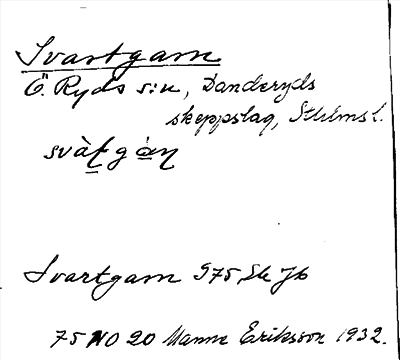 Svartgarn
Ö. Ryds s:n, Danderyds
skeppslag, Sthlms l.
Svartgarn 975, Jb
75 NO 20 Manne Eriksson 1932.